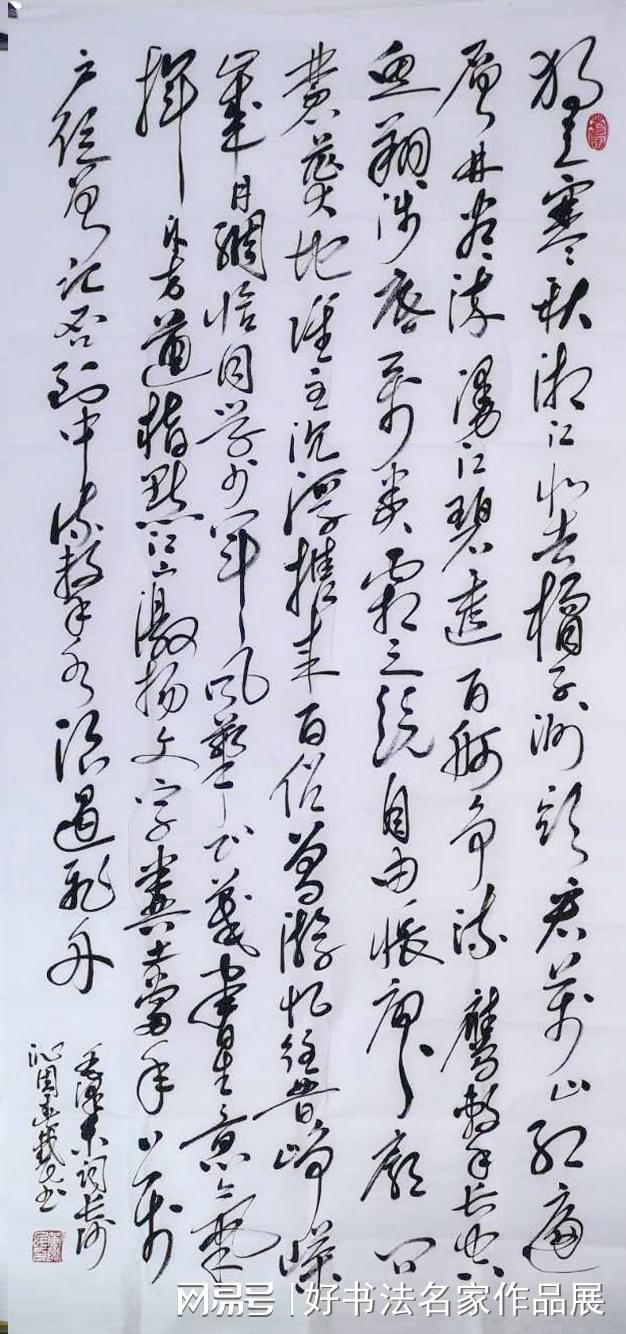 独立寒秋湘江北去橘子洲头看万山红遍
层林尽染漫江碧透百舸争流鹰击长空
鱼翔浅底万类霜天竞自由怅寥廓问
苍茫大地谁主沉浮携来百侣曾游忆往昔峥嵘
岁月稠恰同学少年风华正茂书生意气
挥斥方遒指点江山激扬文字粪土当年万
户侯曾记否到中流击水浪遏飞舟
毛泽东词长沙
沁园春书
网易号 | 好书法名家作品展